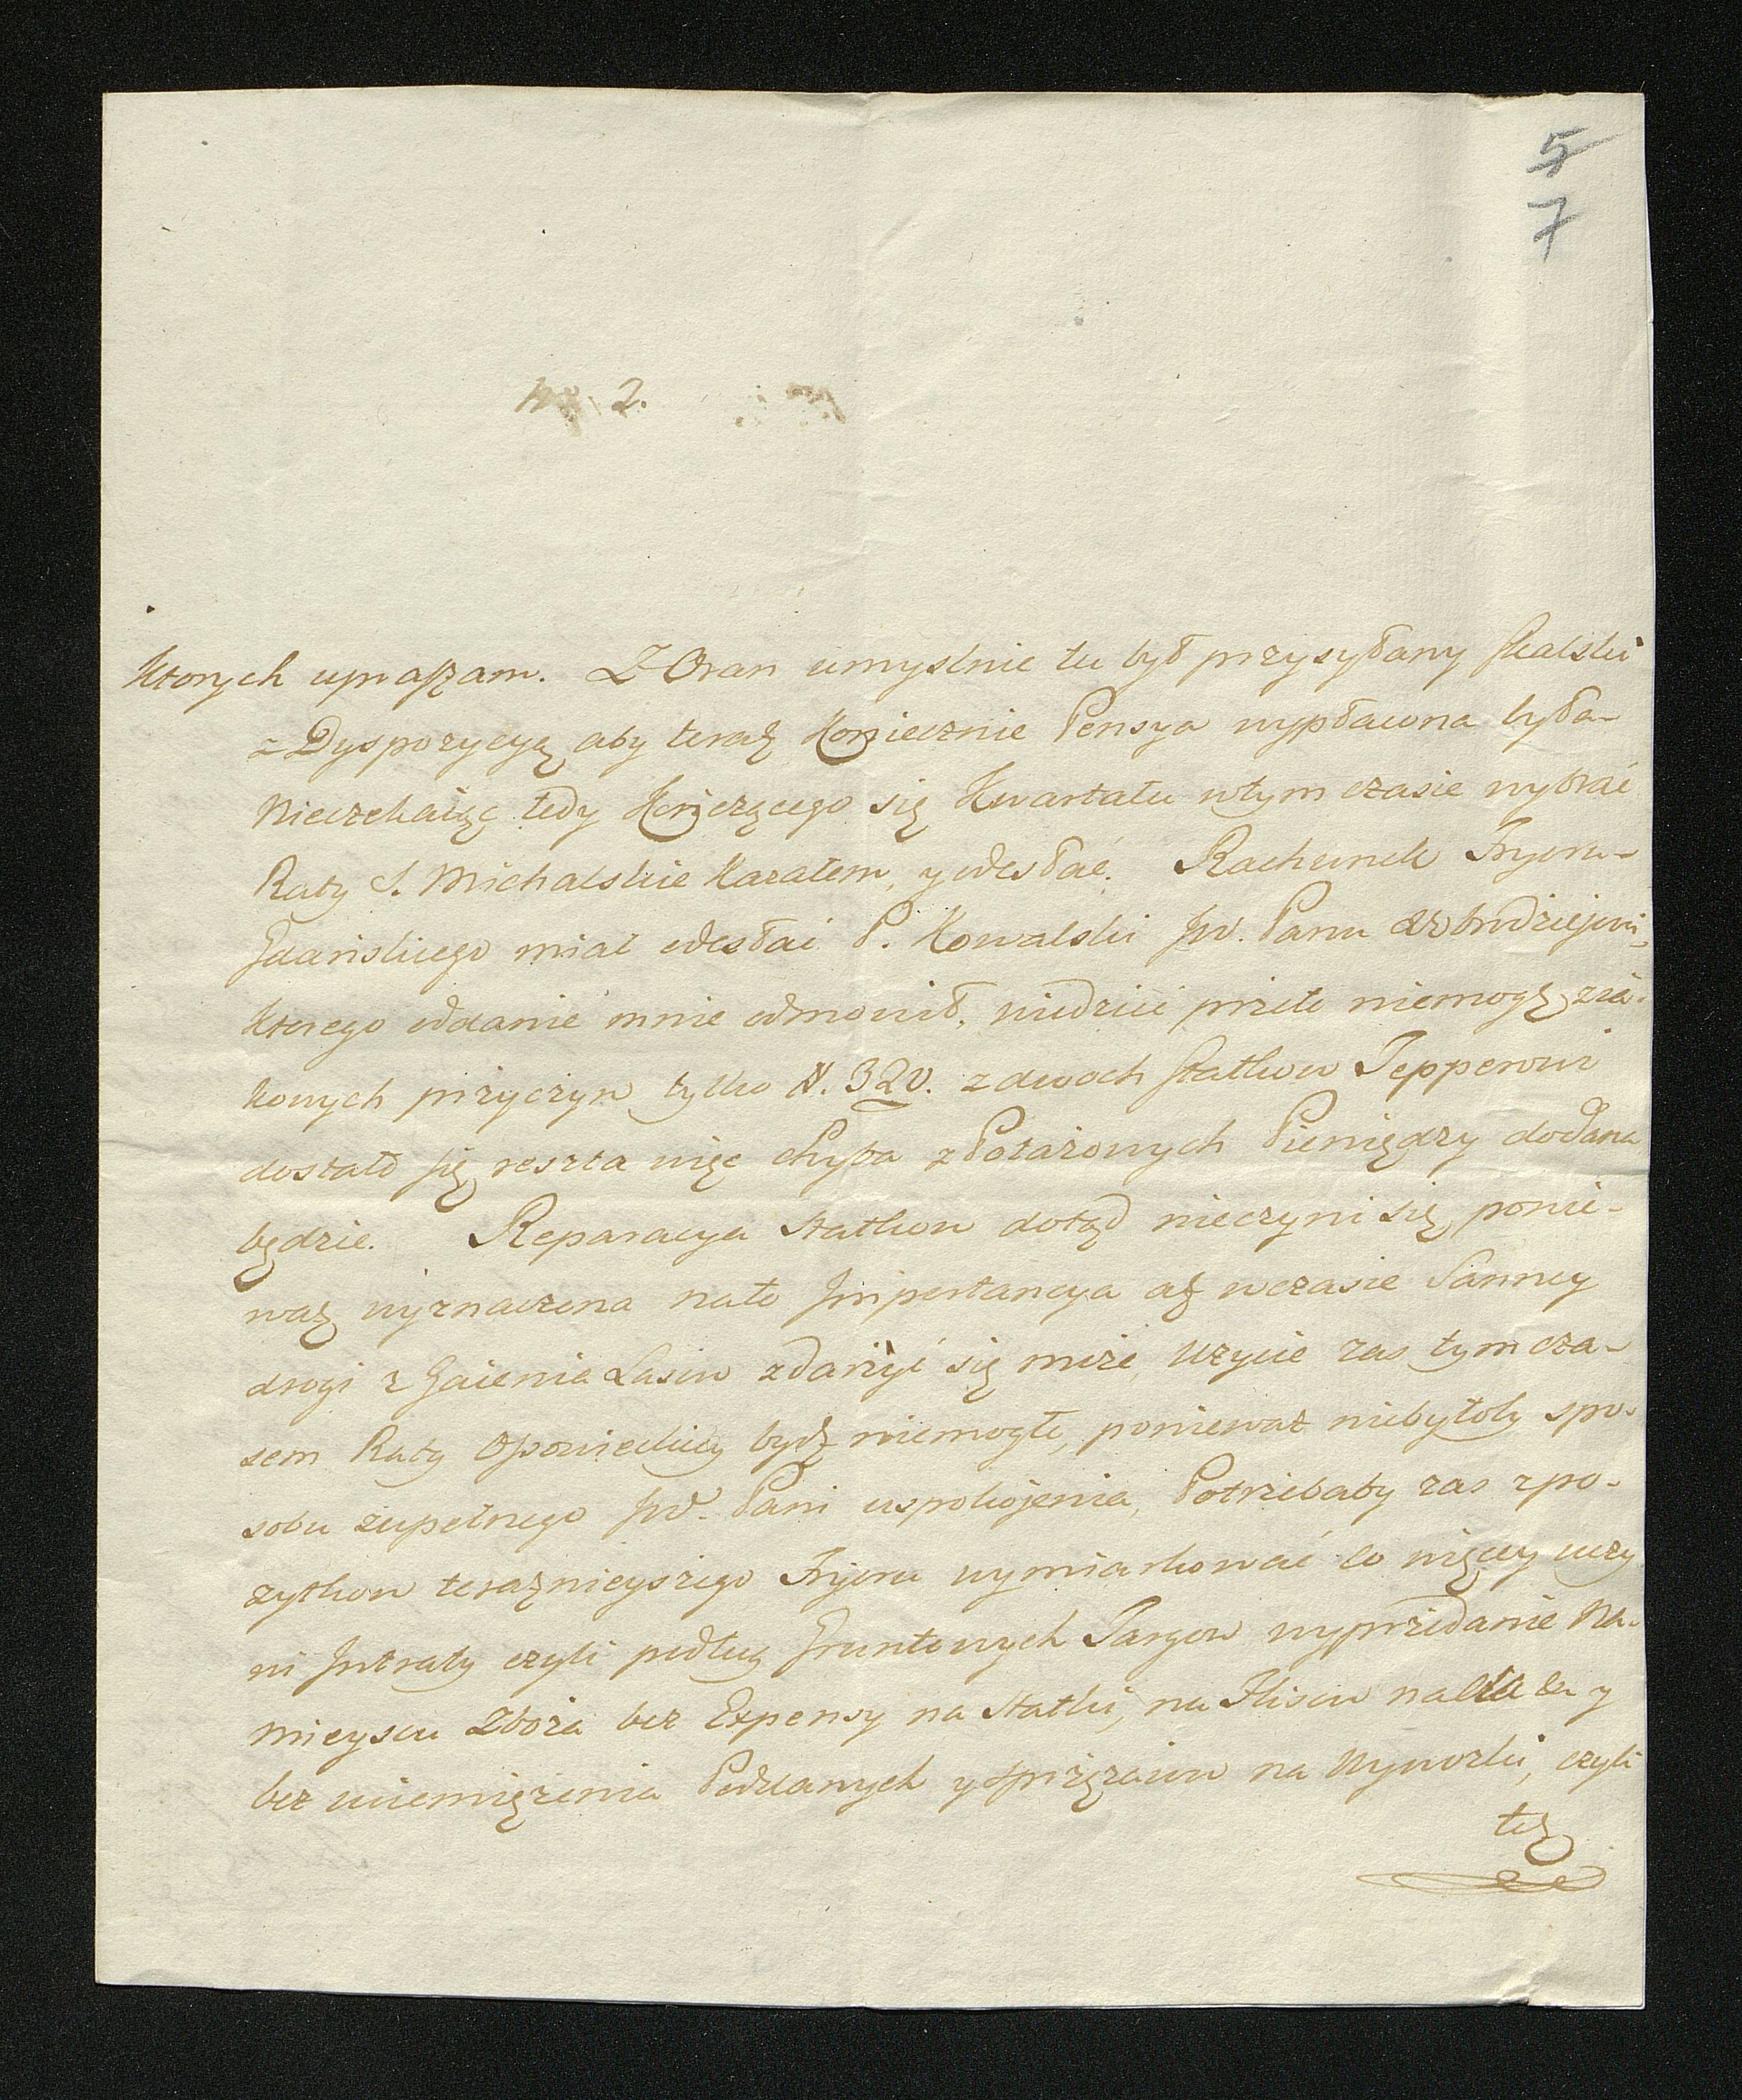 5
7
No 2.
Ktorych upraszam. Z Oran umyslnie tu był przysyłany Skalski
z Dyspozycyą aby teraz Koniecznie Pensya wypłacona była
Nieczekaiąc tedy Kończącego się Kwartału wtym czasie wybrać
Raty S. Michalskie Kazałem, y odesłać. Rachunek Fryoru
Gdańskiego miał odesłać P. Kowalski JW. Panu Dobrodziejowi,
Ktorego oddanie mnie odmowił, wiedzieć przeto niemogę zia-
kowych przyczyn tylko N. 320. zdwoch Statkow Tepperowi
dostało się, reszta więc chyba z Potażowych Pieniędzy dodana
będzie. Reparacya Statkow dotąd nieczyni się, ponie-
waż wyznaczona nato Importancya aż wczasie Sanney
drogi z Gaienia Lasow zdarzyć się może, Użycie zas tymcza-
sem Raty bydź niemogło, ponieważ niebyłoby spo-
sobu zupełnego JW. Pani uspokojenia, Potrzebaby zas z po-
zytkow teraznieyszego Fryoru wymiarkować co więcey uczy
ni Intraty czyli podług Gruntowych Targow wyprzedanie Na-
mieyscu Zboża bez Expensy na Statki, na Flisow y
bez uciemiężenia Poddanych y Sprzężaiow na Wywozki, czyli
też